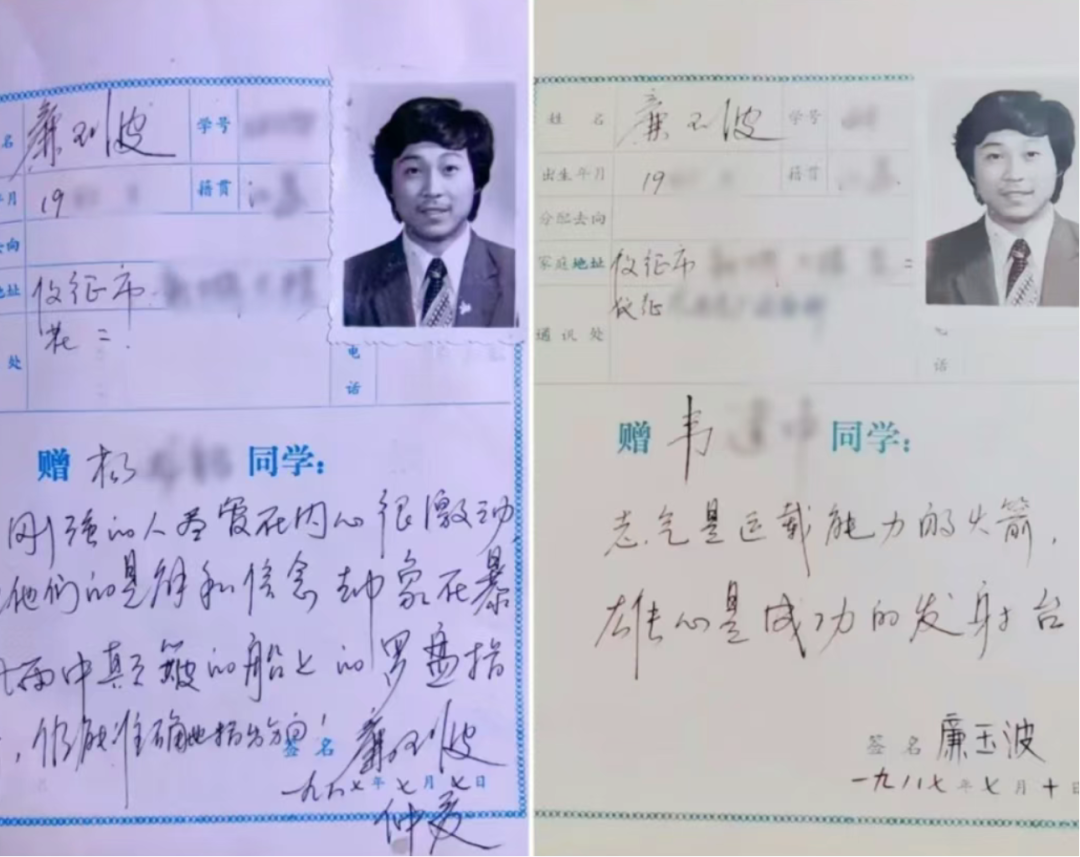 名 廉玉波 学号
年月 19 籍贯
去向
地址 仪征市
花二.
处 电话
赠 杨 同学:
刚强的人尽管在内心很激动
他们的见解和信念却象在暴
雨中颠簸的船上的罗盘指
,仍能准确地指出方向!
签名 廉玉波
一九八七年七月七日
仲夏
姓名 廉玉波 学号
出生年月 19 籍贯
分配去向
家庭地址 仪征市 二
仪征
通讯处 电话
赠 韦 同学:
志气是运载能力的火箭,
雄心是成功的发射台
签名 廉玉波
一九八七年七月十日